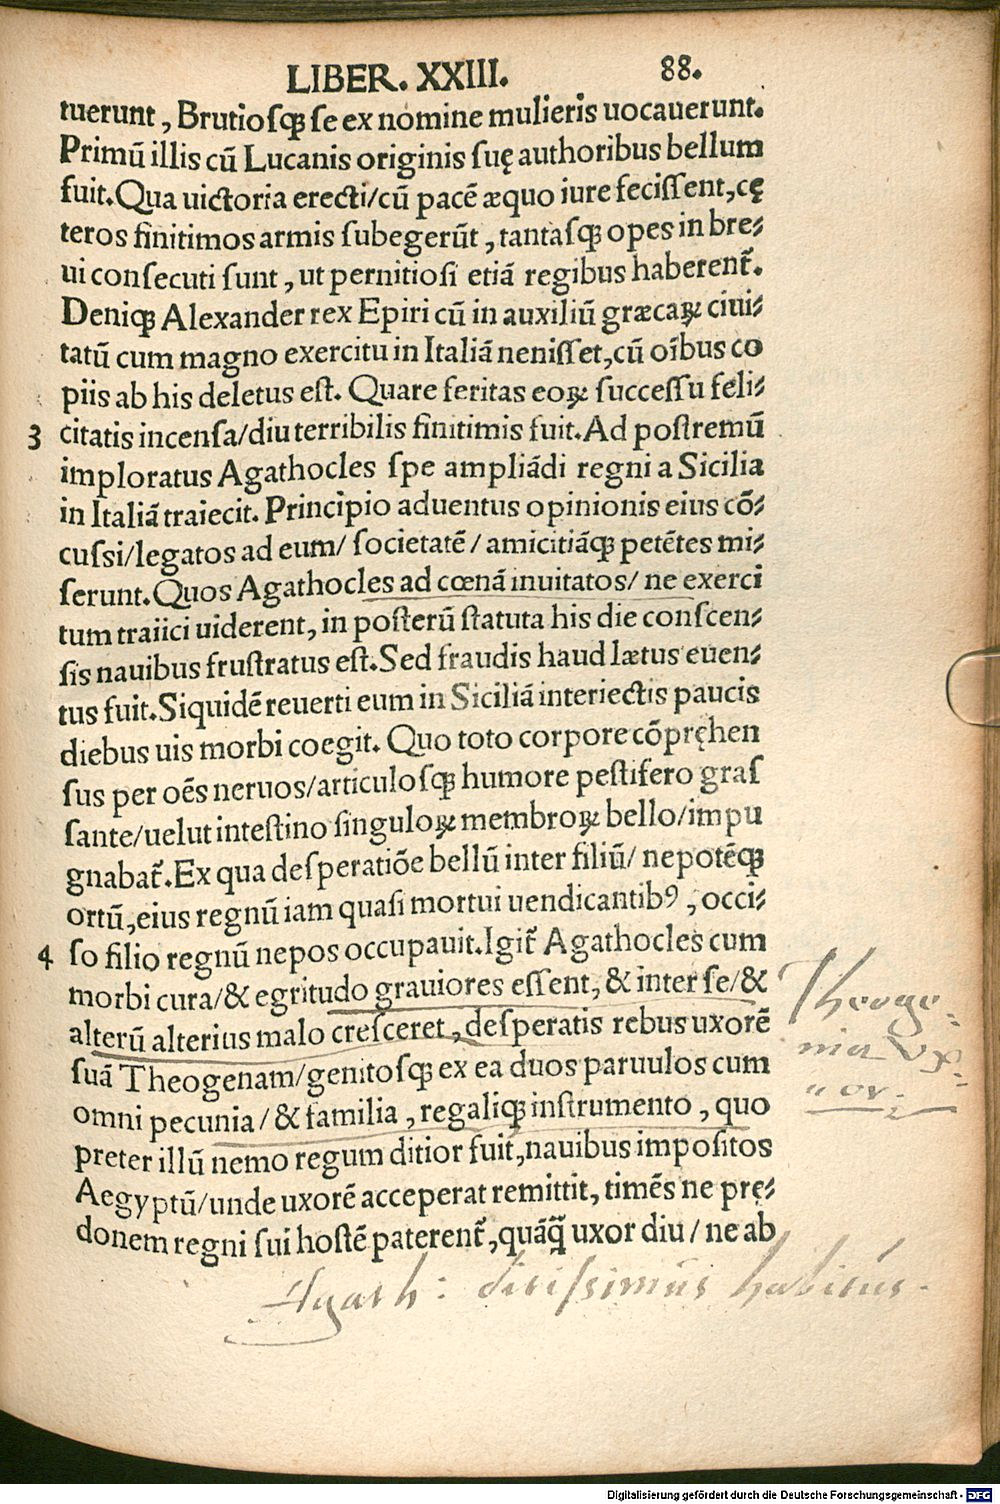 LIBER. XXIII. 88.
tuerunt, Brutiosqꝫ se ex nomine mulieris uocauerunt.
Primū illis cū Lucanis originis suę authoribus bellum
fuit. Qua uictoria erecti/cū pacē æquo iure fecissent, cę
teros finitimos armis subegerūt, tantasqꝫ opes in bre⸗
ui consecuti sunt, ut pernitiosi etiā regibus haberent̃.
Deniqꝫ Alexander rex Epiri cū in auxiliū græcaꝝ ciui⸗
tatū cum magno exercitu in Italiā nenisset, cū oībus co
piis ab his deletus est. Quare feritas eoꝝ successu feli⸗
3 citatis incensa/diu terribilis finitimis fuit. Ad postremū
imploratus Agathocles spe ampliādi regni a Sicilia
in Italiā traiecit. Principio aduentus opinionis eius cō⸗
cussi/legatos ad eum/ societatē/ amicitiāqꝫ petētes mi⸗
serunt. Quos Agathocles ad cœnā inuitatos/ ne exerci
tum traiici uiderent, in posterū statuta his die conscen⸗
sis nauibus frustratus est. Sed fraudis haud lætus euen⸗
tus fuit. Siquidē reuerti eum in Siciliā interiectis paucis
diebus uis morbi coegit. Quo toto corpore cōpręhen
sus per oēs neruos/articulosqꝫ humore pestifero gras
sante/uelut intestino singuloꝝ membroꝝ bello/impu
gnabat̃. Ex qua desperatiōe bellū inter filiū/ nepotēqꝫ
ortū, eius regnū iam quasi mortui uendicantibꝰ, occi⸗
4 so filio regnū nepos occupauit. Igit̃ Agathocles cum
morbi cura/& egritudo grauiores essent, & inter se/&
alterū alterius malo cresceret, desperatis rebus uxorē
suā Theogenam/genitosqꝫ ex ea duos paruulos cum
omni pecunia/& familia, regaliqꝫ instrumento, quo
preter illū nemo regum ditior fuit, nauibus impositos
Aegyptū/unde uxorē acceperat remittit, timēs ne prę⸗
donem regni sui hostē paterent̃, quāq̃ uxor diu/ ne ab
Theoge-
nia ux-
or.
Agath: ditissimus habitus.